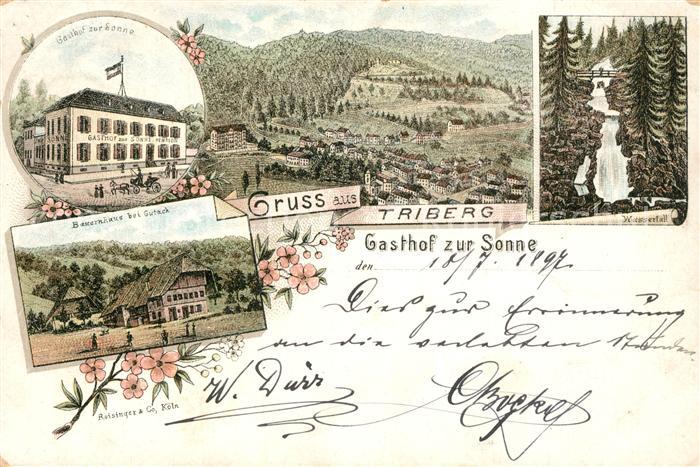 Gasthof zur Sonne
SONNE
GASTHOF zur SONNE PENSION
Wasserfall
Gruss aus
TRIBERG
Bauernhaus bei Gutach
Gasthof zur Sonne
den 18/7. 1897
Dies zur Erinnerung
an die verlebten Stunden
W. Dürr
Reisinger & Co, Köln